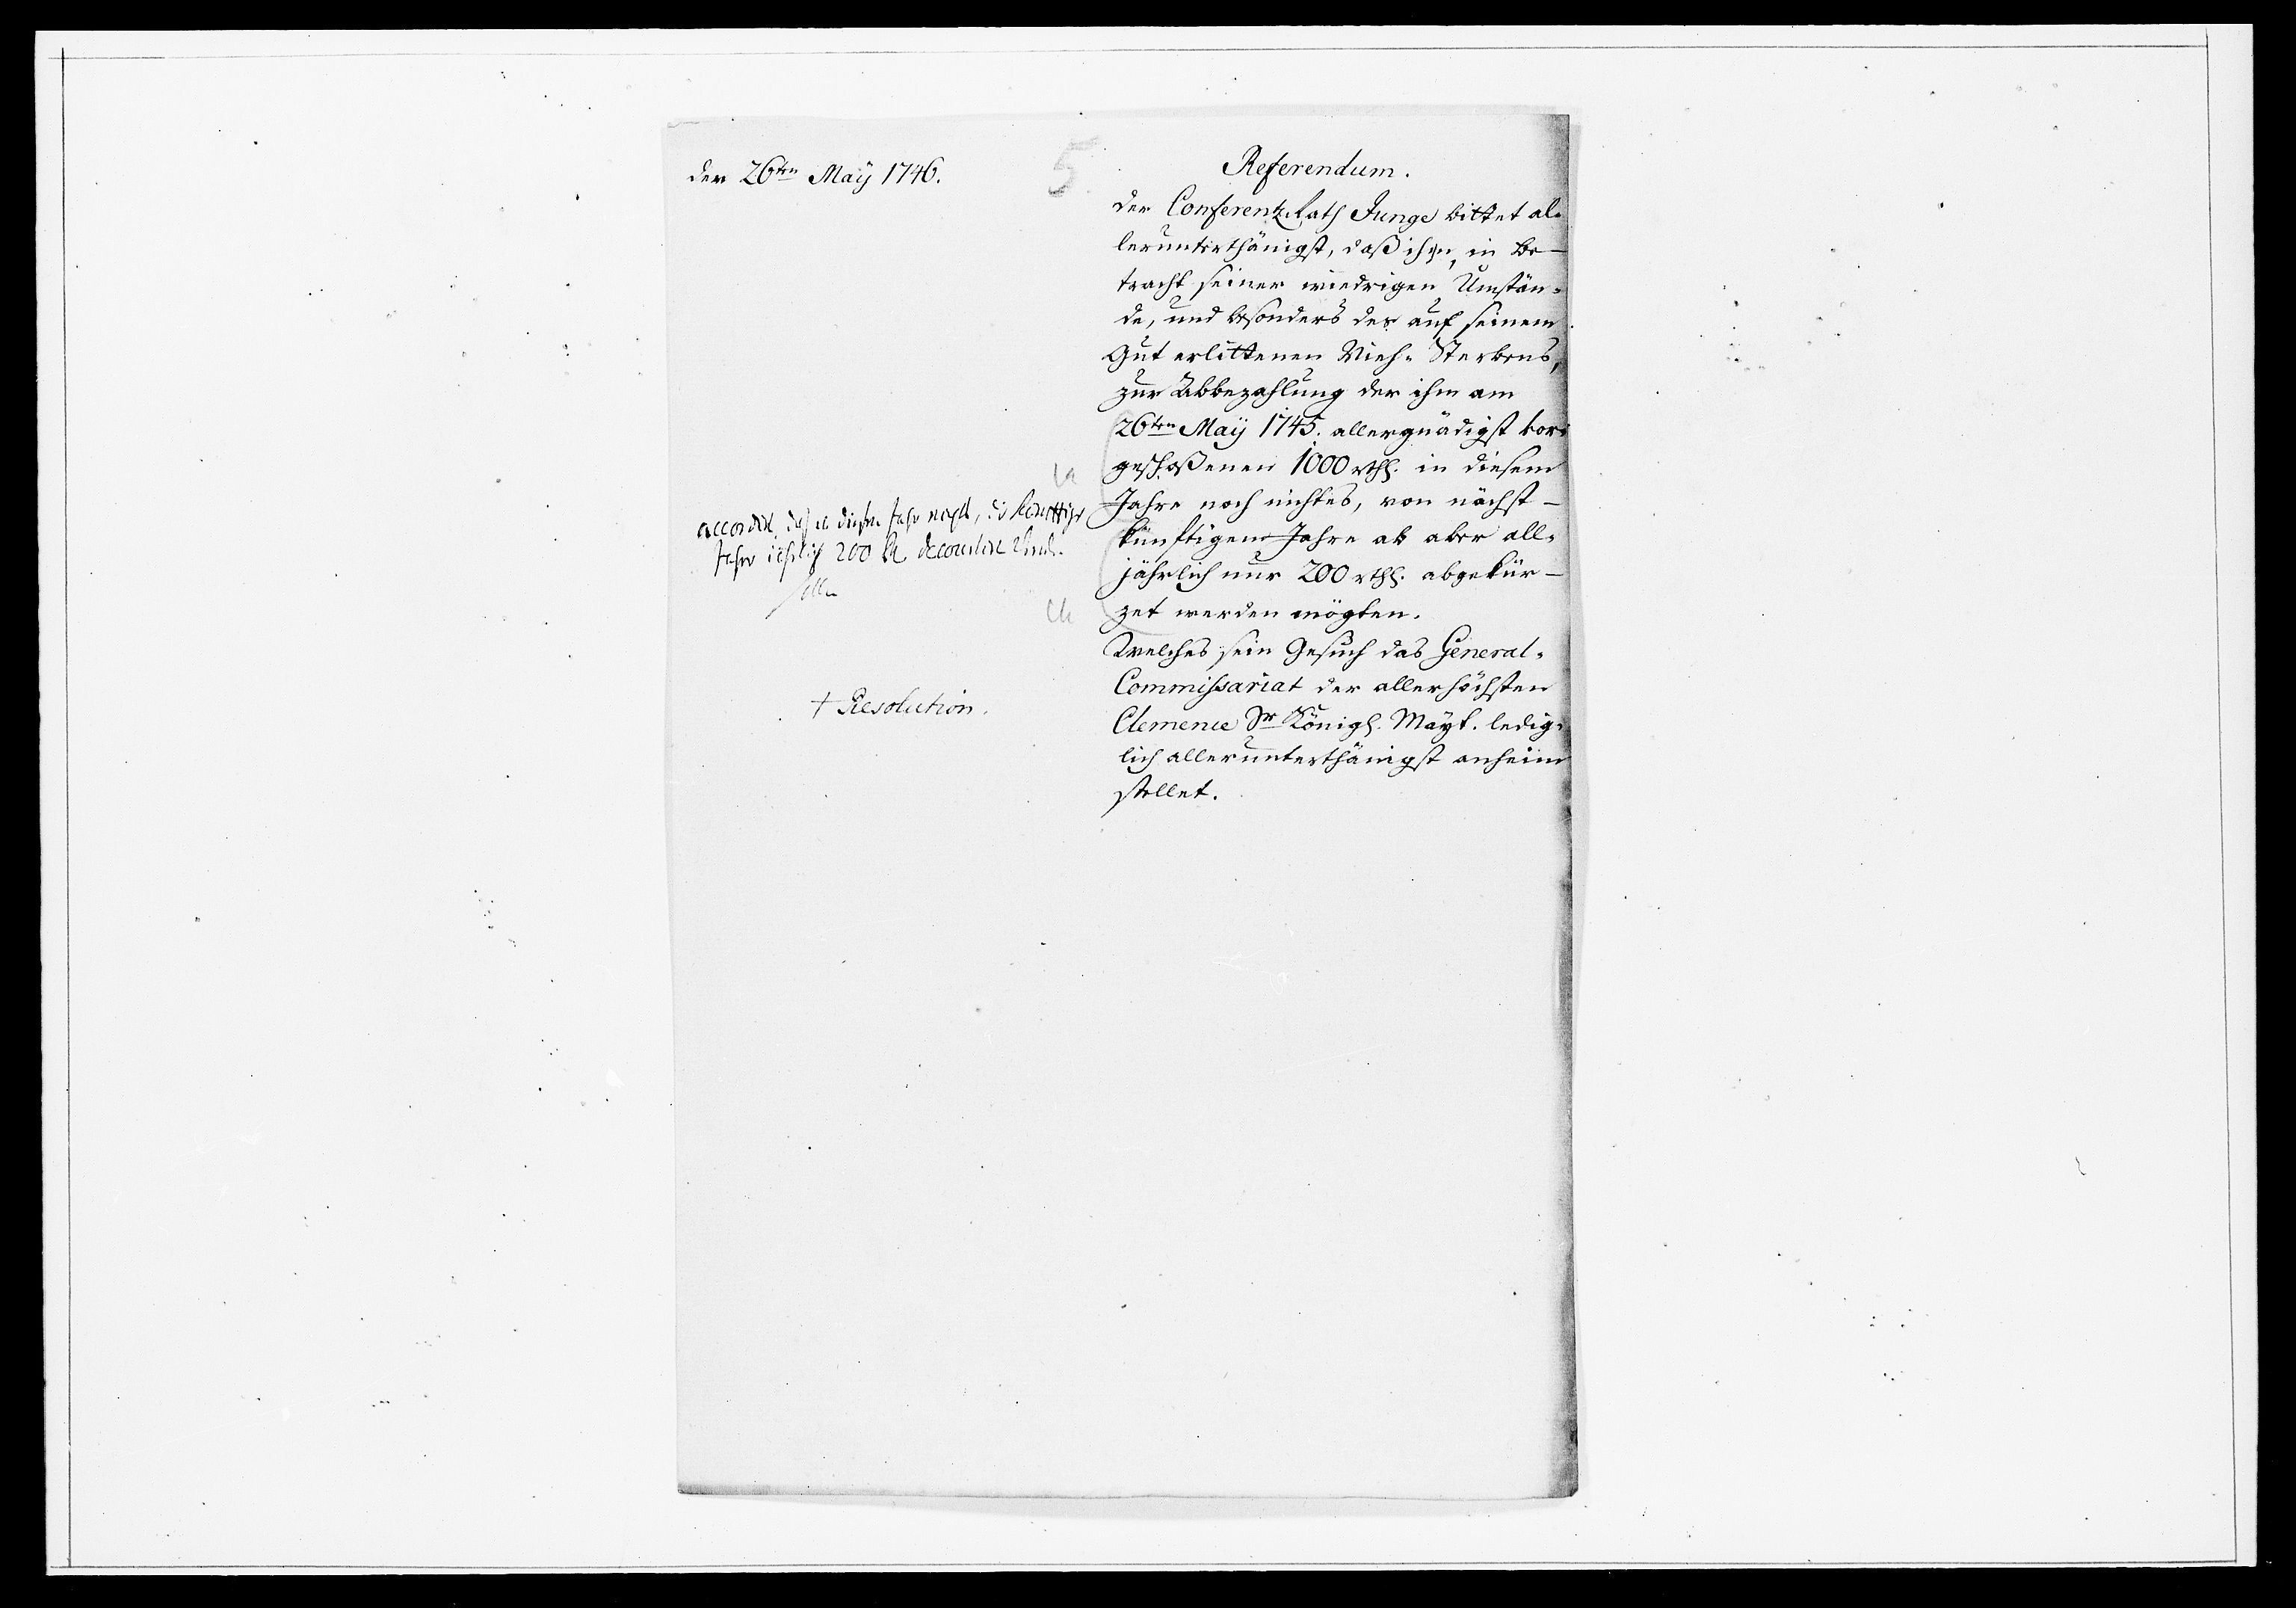 den 26ten Maÿ 1746.
5
Referendum.
Der Conferentz Rath Junge bittet al-
lerunterthänigst, daß ihm, in Be-
tracht seiner wiedrigen Umstän-
de, und besonders des auf seinem
Gut erlittenen Vieh-Sterbens,
zur Abbezahlung der ihm am
26ten Maÿ 1745. allergnädigst vor-
geschoßenen 1000 rthl. in diesem
Jahre noch nichtes, von nächst-
künftigem Jahre ab aber all-
jährlich nur 200 rthl. abgekür-
zet werden mögten.
Welches sein Gesuch das General-
Commissariat der allerhöchsten
Clemence Sr Königl. Mayt. ledig-
lich allerunterthänigst anheim
stellet.
accordirt, daß diesen Jahr nichts, die Kunfftige
Jahr jährlich 200 decourtirt
sollen
+ Resolution.